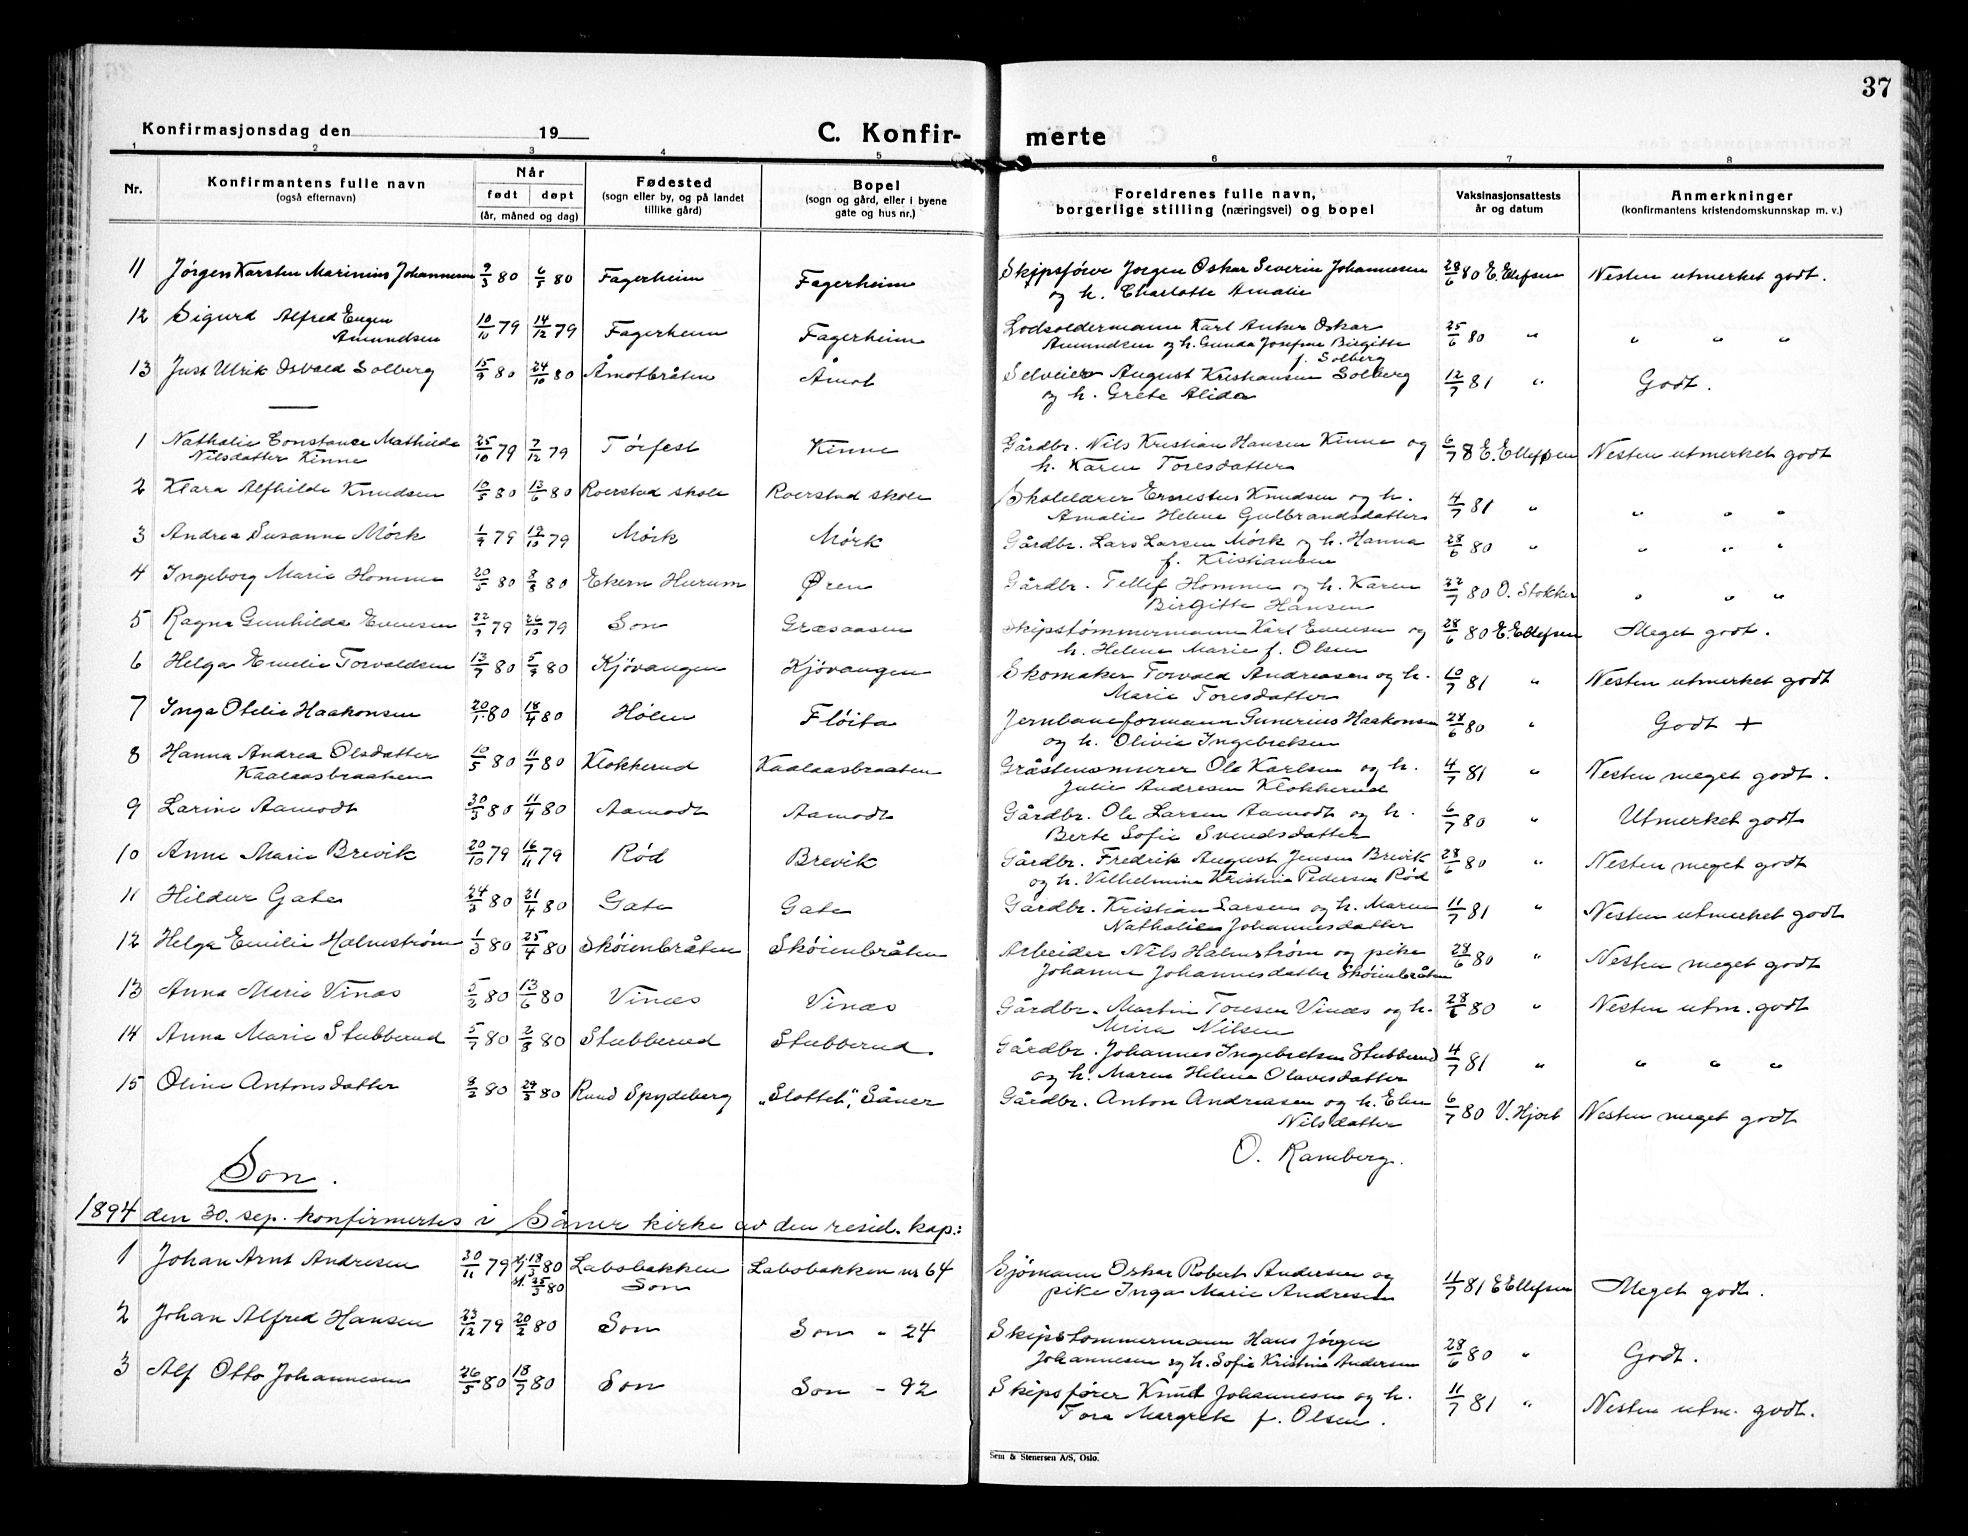 37
Konfirmasjonsdag den 19
C. Konfir- merte
1 2 3 4 5 6 7 8
Nr. Konfirmantens fulle navn (også efternavn) Når født døpt (år, måned og dag) Fødested (sogn eller by, og på landet tillike gård) Bopel (sogn og gård, eller i byene gate og hus nr.) Foreldrenes fulle navn, borgerlige stilling (næringsvei) og bopel Vaksinasjonsattests år og datum Anmerkninger (konfirmantens kristendomskunnskap m. v.)
11 Jörgen Karsten Marinius Johannesen 9/3 80 6/5 80 Fagerheim Fagerheim Skipsförer Jörgen Oskar Severin Johannesen 28/6 80 E. Ellefsen Nesten utmerket godt.
og h. Charlotte Amalie
12 Sigurd Alfred Eugen 10/10 79 14/12 79 Fagerheim Fagerheim Lodsoldermann Karl Anker Oskar 25/6 80 " " " "
Amundsen Amundsen og h. Gunda Josefine Birgitte
f. Solberg
13 Just Ulrik Osvald Solberg 15/9 80 24/10 80 Åmotbråten Åmot Selveier August Kristiansen Solberg 12/7 81 " Godt.
og h. Grete Alida
1 Nathalie Constance Mathilde 25/10 79 7/12 79 Törfest Kinne Gårdbr. Nils Kristian Hansen Kinne og 6/7 8 E. Ellefsen Nesten utmerket godt
Nilsdatter Kinne h. Karen Toresdatter
2 Klara Alfhilde Knudsen 10/5 80 13/6 80 Roerstad skole Roerstad skole Skolelærer Ernestus Knudsen og h. 4/7 81 " " " "
Amalie Helene Gulbrandsdatter
3 Andrea Susanne Mörk 1/9 79 19/10 79 Mörk Mörk Gårdbr. Lars Larsen Mörk og h. Hanna 28/6 80 " " " "
f. Kristiansen
4 Ingeborg Marie Homme 20/5 80 8/8 80 Ekern Hurum Øren Gårdbr. Tellef Homme og h. Karen 22/7 80 O. Stokker " " "
Birgitte Hansen
5 Ragna Gunhilda Evensen 22/9 79 26/10 79 Son Græsaasen Skipstömmermann Karl Evensen og 28/6 80 E. Ellefsen Meget godt.
h. Helene Marie f. Olsen
6 Helga Emelie Torvaldsen 13/7 80 5/9 80 Kjövangen Kjövangen Skomaker Torvald Andreasen og h. 10/7 81 " Nesten utmerket godt
Marie Toresdatter
7 Inga Otilie Haakonsen 20/1 80 18/4 80 Hölen Flöita Jernbaneformann Gunerius Haakonsen 28/6 80 " Godt +
og h. Olivia Ingebretsen
8 Hanna Andrea Olsdatter 10/5 80 11/7 80 Klokkerud Kaalaasbraaten Gråstensmurer Ole Karlsen og h. 4/7 81 " Nesten meget godt.
Kaalaasbraaten Julie Andresen Klokkerud
9 Larine Aamodt 30/3 80 11/4 80 Aamodt Aamodt Gårdbr. Ole Larsen Aamodt og h. 6/7 80 " Utmerket godt
Berte Sofie Svendsdatter
10 Anne Marie Brevik 20/10 79 16/11 79 Röd Brevik Gårdbr. Fredrik August Jensen Brevik 28/6 80 " Nesten meget godt
og h. Vilhelmine Kristine Pedersen Röd
11 Hildur Gate 24/3 80 21/4 80 Gate Gate Gårdbr. Kristian Larsen og h. Maren 11/7 81 " Nesten utmerket godt
Nathalie Johannesdatter
12 Helga Emilie Halmström 1/3 80 25/4 80 Sköienbråten Sköienbråten Arbeider Nils Halmström og pike 28/6 80 " Nesten meget godt
Johanne Johannesdatter Sköienbråten
13 Anna Marie Vinæs 5/2 80 13/6 80 Vinæs Vinæs Gårdbr. Martin Toresen Vinæs og h. 28/6 80 " Nesten utm. godt
Mina Nilsen
14 Anna Marie Stubberud 5/7 80 2/8 80 Stubberud Stubberud. Gårdbr. Johannes Ingebretsen Stubberud 4/7 81 " " " "
og h. Maren Helene Olavesdatter
15 Oline Antonsdatter 8/2 80 29/3 80 Ruud Spydeberg „Slottet", Såner Gårdbr. Anton Andreasen og h. Elen 6/7 80 V. Hjort Nesten meget godt
Nilsdatter
O. Ramberg.
Son.
1894 den 30. sep. konfirmertes i Såner kirke av den resid. kap.:
1 Johan Arnt Andresen 30/11 79 Hj. 18/3 80 Labobakken Labobakken nr 64 Sjömann Oskar Robert Andersen og 11/7 81 E Ellefsen Meget godt.
25/3 80 Son pike Inga Marie Andresen
2 Johan Alfred Hansen 23/12 79 20/2 80 Son Son - 24 Skipstömmermann Hans Jörgen 28/6 80 " Godt.
Johannesen og h. Sofie Kristine Andersen
3 Alf Otto Johannesen 26/5 80 18/7 80 Son Son - 92 Skipsförer Knut Johannesen og h. 11/7 81 " Nesten utm. godt.
Tora Margrete f. Olsen.
Sem & Stenersen A/S, Oslo.